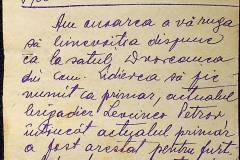 Am onoarea a vă ruga
să binevoiți a dispune
ca la satul Dvoreanca
din com. Zidierca să fie
numit ca primar, actualul
brigadier Levinco Petrov
întrucât actualul primar
a fost arestat pentru furt